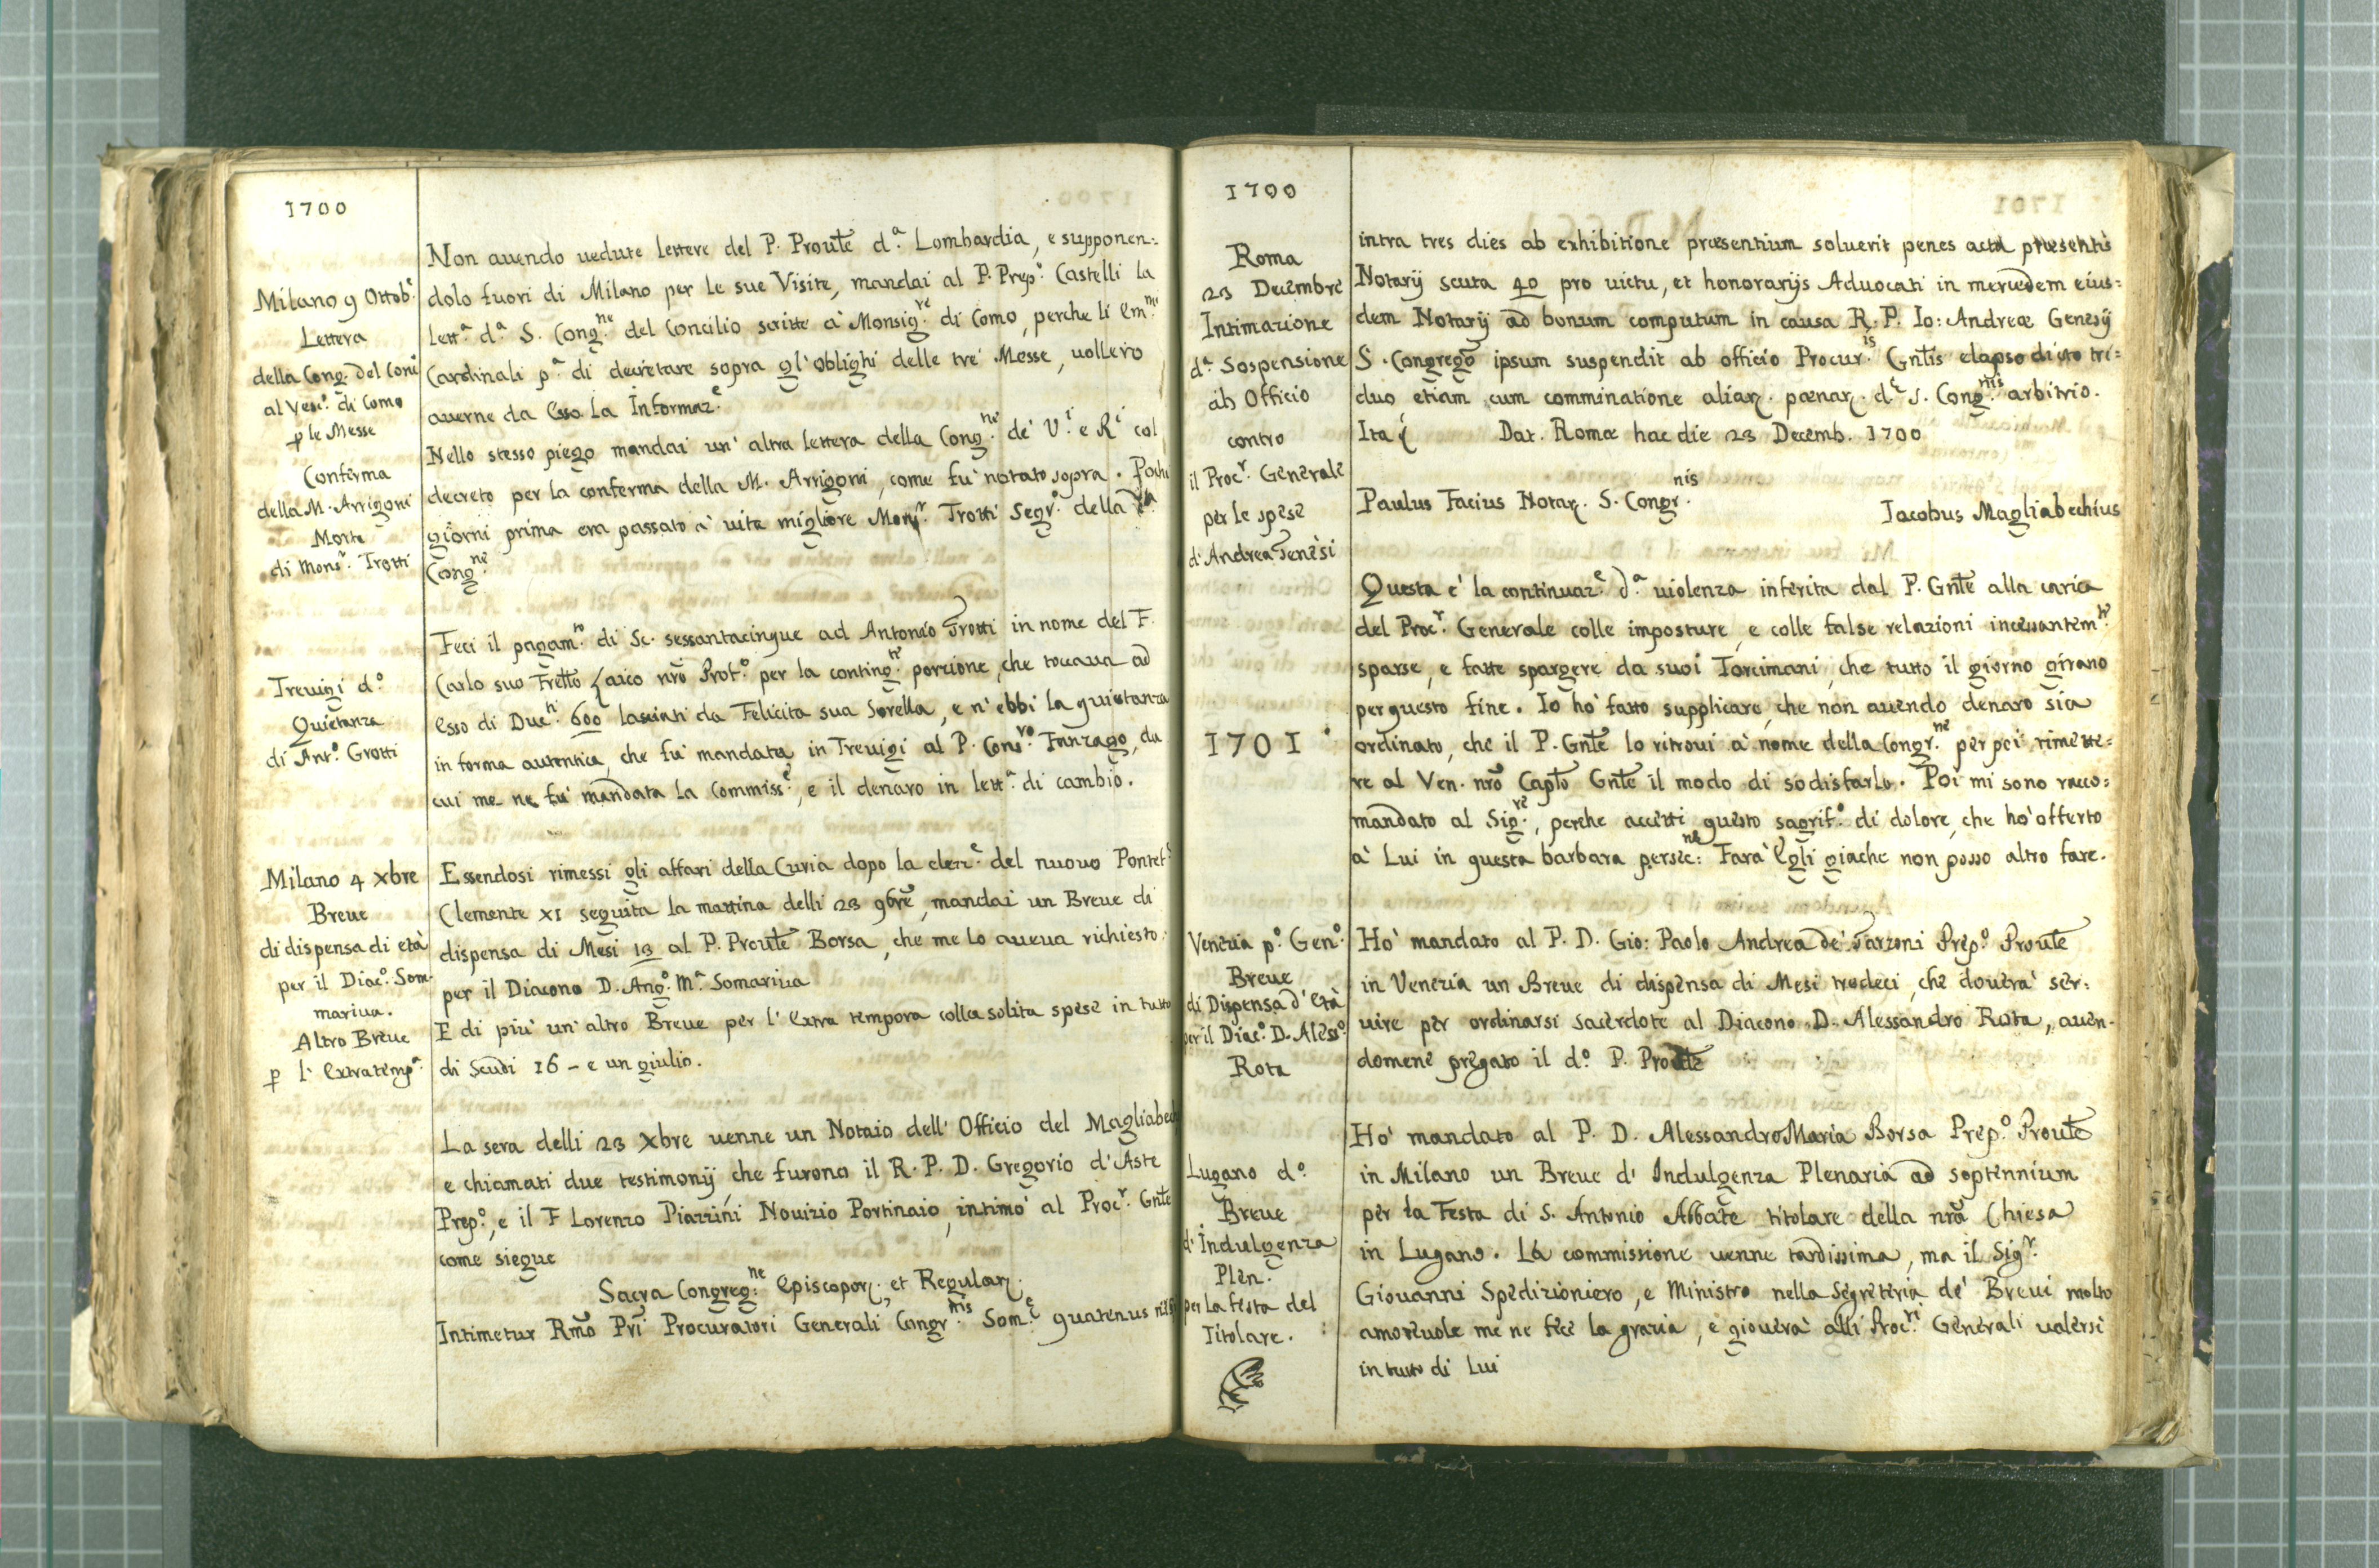 1700
Milano 9 Ottobᵉ.
Lettera
della Cong. del Conᵉ
al Vescᵒ. di Como
p le Messe
Conferma
della M. Arrigoni
Morte
di Monsʳ. Trotti
Non auendo uedute lettere del P. Proule dᵃ. Lombardia, e supponen:
dolo fuori di Milano per le sue Visite, mandai al P. Prepᵒ. Castelli la
lettᵃ. dᵃ. S. Congⁿᵉ. del Concilio scritte à Monsigʳᵉ. di Como, perche li Emⁿⁱ
Cardinali pᵃ. di decretare sopra gl'oblighi delle trè Messe, uollero
auerne da Esso la Informazᵉ.
Nello stesso piego mandai un' altra lettera della Congⁿᵉ. de' Vⁱ. e Rⁱ col
decreto per la conferma della M. Arrigoni, come fu' notato sopra. Pochi
giorni prima era passato à uita migliore Monsʳ. Trotti Segrᵒ. della dᵃ.
Congⁿᵉ.
Treuigi dᵒ.
Quietanza
di Antᵒ. Grotti
Feci il pagamᵗᵒ. di Sc. sessantacinque ad Antonio Trotti in nome del F.
Carlo suo Frello Laico nro Profᵒ. per la contingᵗᵉ. porzione, che toccaua ad
Esso di Ducᵗⁱ. 600 lasciati da Felicita sua Sorella, e n'ebbi la quietanza
in forma autentica, che fu' mandata in Treuigi al P. Consʳᵒ. Fanzago, da
cui me ne fu' mandata la Commissᵉ, e il denaro in lettᵃ. di cambio.
Milano 4 Xbre
Breue
di dispensa di età
per il Diacᵒ. Som-
mariua.
Altro Breue
p l' Extratempᵃ.
Essendosi rimessi gli affari della Curia dopo la elezᵉ. del nuouo Pontefᵉ
Clemente XI seguita la mattina delli 23 9bre, mandai un Breue di
dispensa di Mesi 13 al P. Proule Borsa, che me lo aueua richiesto
per il Diacono D. Angᵒ. Mᵃ. Somariua
E di più un' altro Breue per l' Extra tempora colla solita spese in tutto
di Scudi 16 - e un giulio.
La sera delli 23 Xbre uenne un Notaio dell' Officio del Magliabech
e chiamati due testimonij, che furono il R. P. D. Gregorio d'Aste
Prepᵒ., e il F Lorenzo Piazzini Nouizio Portinaio, intimò al Procʳ. Gnle
come siegue
Sacra Congregⁿᵉ: Episcopor. et Regular.
Intimetur Rmo Pri Procuratori Generali Congrⁿⁱˢ. Somᵉ. quatenus nisi
1700
Roma
23 Decembre
Intimazione
dᵃ. Sospensione
ab Officio
contro
il Procʳ. Generale
per le spese
d'Andrea Genesi
intra tres dies ab exhibitione præsentium soluerit penes acta præsentis
Notarij scuta 40 pro uictu, et honorarijs Aduocati in mercedem eius=
dem Notarij ad bonum computum in causa R. P. Io: Andreæ Genesij
S. Congrego ipsum suspendit ab officio Procurⁱˢ. Gnlis elapso dicto tri=
duo, etiam cum comminatione aliar. pœnar. dᵉ. S. Congⁿⁱˢ. arbitrio.
Ita Dat. Romæ hac die 23 Decemb. 1700
Paulus Facius Notar. S. Congrⁿⁱˢ.
Jacobus Magliabechius
1701.
Questa è la continuazᵉ. dᵃ. uiolenza inferita dal P. Gnle alla carica
del Procʳ. Generale colle imposture, e colle false relazioni incessantemᵗᵉ.
sparse, e fatte spargere da suoi Torcimani, che tutto il giorno girano
per questo fine. Io hò fatto supplicare, che non auendo denaro sia
ordinato, che il P. Gnle lo ritroui à nome della Congrⁿᵉ. per poi rimette=
re al Ven. nro Caplo Gnle il modo di sodisfarlo. Poi mi sono racco=
mandato al Sigʳᵉ., perche accetti questo sagrifᵒ. di dolore, che hò offerto
à Lui in questa barbara persecⁿᵉ: Farà Egli giache non posso altro fare.
Venezia pᵒ. Genᵒ.
Breue
di Dispensa d'Età
per il Diacᵒ. D. Alessᵒ.
Rota
Hò mandato al P. D. Gio: Paolo Andrea de' Tarzoni Prepᵒ. Proule
in Venezia un Breue di dispensa di Mesi tredeci, che dourà ser=
uire per ordinarsi sacerdote al Diacono D. Alessandro Rota, auen-
domene pregato il dᵒ. P. Proule
Lugano dᵒ.
Breue
d'Indulgenza
Plen.
per la festa del
Titolare.
Hò mandato al P. D. Alessandro Maria Borsa Prepᵒ. Proule
in Milano un Breue d' Indulgenza Plenaria ad septennium
per la Festa di S. Antonio Abbate titolare della nra Chiesa
in Lugano. La commissione uenne tardissima, ma il Sigʳ.
Giouanni Spedizioniero, e Ministro nella Segreteria de' Breui molto
amoreuole me ne fece la grazia, e giouerà alli Procʳⁱ. Generali ualersi
in tutto di Lui